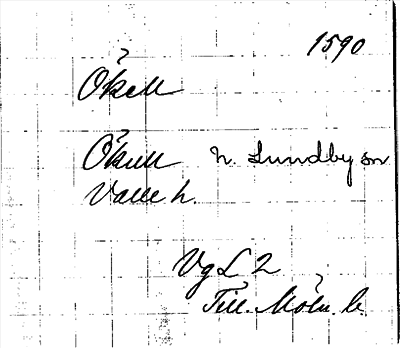 1590
Ökull
Ökull N. Lundby sn
Valle h.
Vg L 2
Till. Möln. b.